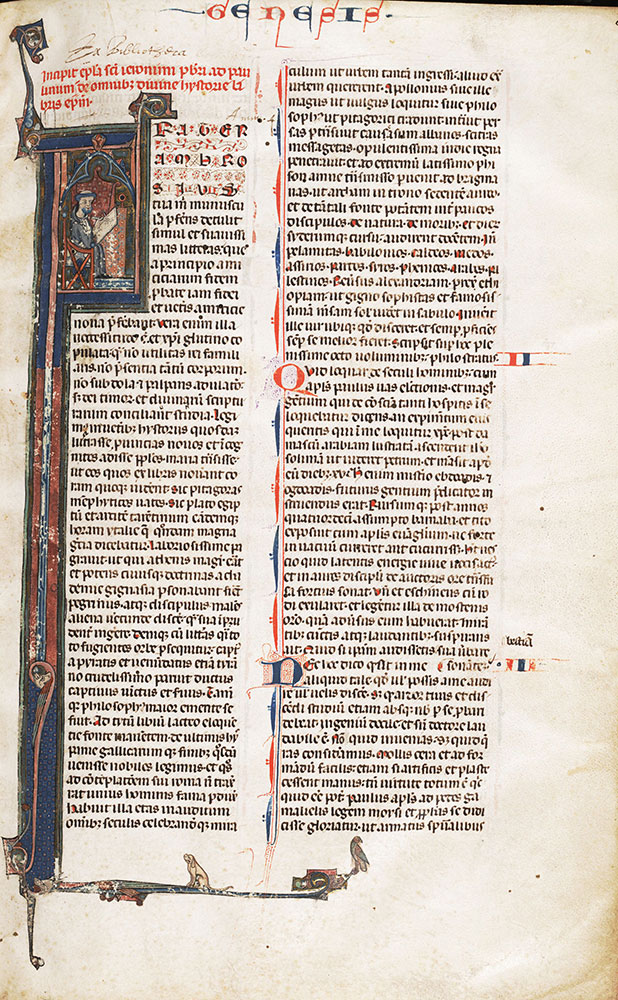 GENESIS
Ex Bibliotheca
Incipit epl'a sci ieronimi pbri ad pau
linum de omnibus divine hystorie li
bris
FRATER
AMBRO
SIUS
tua m munuscu
la pferens detulit
simul et suauissi
mas litteras que
a principio ami
ciciarum fidem
pbate iam fidei
et ueteris amicicie
noua pferebant. Vera enim illa
necessitudo e. et xpi glutino co
pulata qm no utilitas rei famili
aris. no psentia tantu corporum.
no subdola et palpans adulatio.
sed dei timor et diuinarum scriptu
rarum conciliant studia. Legi
mus in ueteribus hystoriis quosdam
lustrasse puincias nouos
adisse pplos. maria transisse.
ut eos quos ex libris nouerant co
ram quoque uiderent. Sic pitagoras
memphyticos uates. sic plato egip
tum et architam tarentinum eamque
horam ytalie que quondam magna
grecia dicebatur laboriosissime pe
ragrauit. ut qui athenis magister erat
et potens cuiusque doctrinas acha
demie gignasia psonabant fieret
peregrinus atque discipulus malens
aliena uerecunde discere quam sua
ingerere. Denique cum litteras quasi to
to fugientes orbe psequitur captus
a pyratis et uenundatus etiam tyran
no crudelissimo paruit ductus
captiuus uictus et seruus. Tamen
quia philosophus maior emente se
fuit. Ad tytum liuium lacteo eloque
tie fonte manantem de ultimis hys
panie galliarumque finibus quosdam
uenisse nobiles legimus. et quos
ad cotemplationem sui roma non trax
erat unius hominis fama pduxit.
habuit illa etas inauditum
omnibus seculis celebrandumque mira
culum ut urbem tantam ingressi aliud extra
urbem quererent. Apollonius siue ille
magus ut uulgus loquitur siue philo
sophus ut pitagorici tradunt intrauit per
sas ptransiuit caucasum albanos. scitas
messagetas. opulentissima indie regna
penetrauit. et ad extremum latissimo phi
son amne transmisso puenit ad bragma
nas. ut archam in throno sedentem aureo
et de tantali fonte potantem inter paucos
discipulos de natura. de moribus. et de cur
su dierum audiret docentem. In
de p elamitas. babilonios. caldeos. medos.
assirios. parthos. siros. phenices. arabes. pa
lestinos. reuersus alexandriam. perrexit ethi
opiam. ut gignosophistas et famosis
simam solis mensam uideret in sabulo. Inuenit
ille uir ubique quod disceret. et semper pficiens
semper se melior fieret. Scripsit super hoc ple
nissime octo uoluminibus. philostratus.
II
Quid loquar de seculi hominibus. cum
apls paulus uas electionis. et magister
gentium qui de conscientia tanti hospitis in se
loquebatur dicens. an experimentum eius
queritis qui in me loquitur xpc. post da
mascum arabiamque lustratam ascendit iero
solimam ut uideret petrum. et mansit aput
eum diebus xv. Hoc enim misterio ebdoadis et
ogdoadis. futurus gentium predicator in
struendus erat. Rursumque post annos
quatuordecim. assumpto barnaba. et tito
exposuit cum aplis euuangelium. ne forte
in uacuum curreret aut cucurrisset. Habet nes
cio quid latentis energie uiue uocis actus.
et in aures discipuli de auctoris ore transfusa
fortius sonat. Unde et eschines cum ro
di exularet. et legeretur illa demostenis
oratio. quam aduersus eum habuerat. miran
tibus cunctis atque laudantibus. suspirans
ait. Quid si ipsam audissetis sua uerba
bestiam
III
Nec hoc dico quod sit in me resonantem.
aliquid tale. quod uel possis a me audi
re uel uelis discere. sed quo ardor tuus et dis
cendi studium etiam absque nobis per se probari
debeat. ingenium docile et sine doctore lau
dabile est. Non quid inuenias. sed quid que
ras consideramus. Mollis cera et ad for
mandum facilis. etiam si artificis et plaste
cessent manus. tamen uirtute totum est quic
quid esse potest. Paulus apls ad pedes ga
malielis legem moysi et prophetas se didi
cisse gloriatur. ut armatus spiritualibus